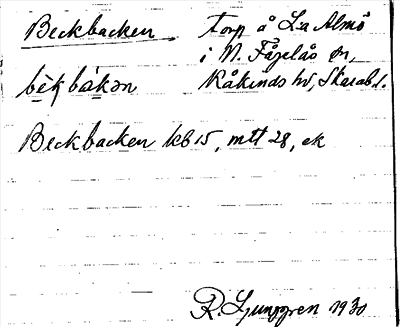 Beckbacken torp å L:a Almö
i N. Fågelås sn,
bèkbákən Kåkinds hd, Skarab. l.
Beckbacken kb 15, mtt 28, ek
R. Ljunggren 1930